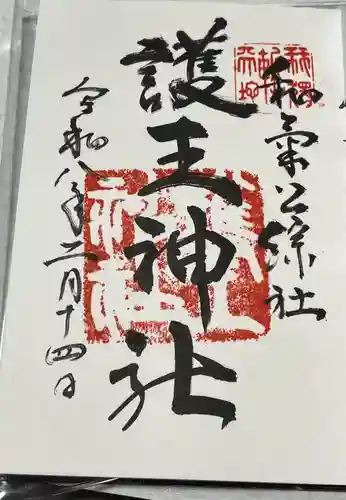 和氣公綜社
護王神社
令和八年二月十四日